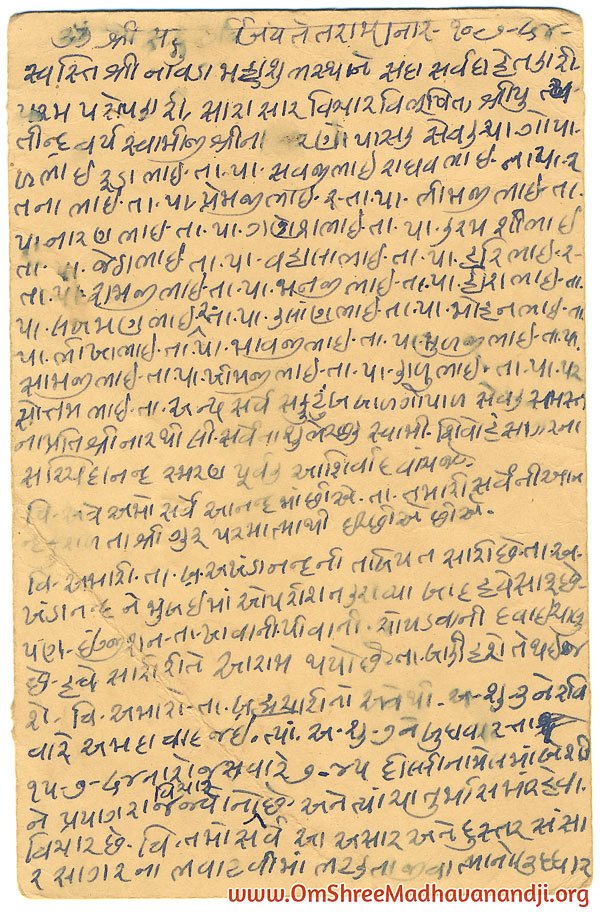 ૐ શ્રી સદ્ જેતલરામાનાર- ૧૦-૭-૫૪-
સ્વસ્તિ શ્રી નોંવડા મહાશુભસ્થાને સદા સર્વદા હેતકારી
પરમ પરોપકારી, સારા સાર વિચાર વિભૂષિત, શ્રીયુત
તીન્દ્ર વર્ય સ્વામીજી શ્રીના ચરણો પાસક સેવકયા ગોપા
ળભાઈ રૂડાભાઈ. તા. પા. સવજીભાઈ રાઘવભાઈ. તા. પા. ર
તનાભાઈ. તા. પા. પ્રેમજીભાઈ. ર. તા. પા. ભીમજીભાઈ. તા.
પા. નારણભાઈ. તા. પા. ગણેશભાઈ. તા. પા. કરમશીભાઈ
તા. પા. જેઠાભાઈ. તા. પા. વહાલાભાઈ. તા. પા. હરિભાઈ. ર.
તા. પા. રામજીભાઈ. તા. પા. મનજીભાઈ. તા. પા. હીરાભાઈ. તા.
પા. લખમણભાઈ. તા. પા. કલાણભાઈ. તા. પા. મોહનભાઈ. તા.
પા. ભીખાભાઈ. તા. પા. ભાવજીભાઈ. તા. પા. મુળજીભાઈ. તા. પા.
સામજીભાઈ. તા. પા. ખીમજીભાઈ. તા. પા. કાળુભાઈ. તા. પા. પર
સોત્તમભાઈ. તા. અન્ય સર્વ સકુટુંબ બાળગોપાળ સેવક સમસ્ત
ના પ્રતિ શ્રી નારથી લી. સર્વના શુભેચ્છક સ્વામી. શિવોહંસાગરના
સચ્ચિદાનન્દ સ્મરણ પૂર્વક આશિર્વાદ વાંચજો.
વિ. અત્રે અમો સર્વે આનન્દમાં છીએ. તા. તમારી સર્વેની આન
ન્દ તા શ્રી ગુરુ પરમાત્માથી ઈચ્છીએ છીએ.
વિ. અમારી. તા. બ્ર. અખંડાનન્દની તબિયત સારી છે. તા. અ.
ખંડાનન્દને મુંબઈમાં ઓપરેશન કરાવ્યા બાદ હવે સારૂ છે.
પણ. ઈંજીક્શન. તા. ખાવાની. પીવાની. ચોપડવાની દવાઈ ચાલુ
છે. હવે સારી રીતે આરામ થયો છે. તા. બાકી હશે તે થઈ જ
શે. વિ. અમારી. તા. બ્રહ્મચારીનો અત્રેથી. અ. શુ. ને રવિ
વારે અમદાવાદ જઈ. ત્યાં. અ. શુ. ને બુધવાર તા
૧૫-૭-૫૪ ના રોજ સવારે ૭-૪૫ દીલ્લીના મેલમાં બેશી
ને પ્રયાગરાજ જવાનો વિચાર છે. અને ત્યાં ચાતુર્માસમાં રહેવા.
વિચાર છે. વિ. તમો સર્વે આ અસાર અને દુસ્તર સંસા
ર સાગરના ભવાટવીમાં ભટકતા જીવાત્માને ઉદ્ધાર
www.OmShreeMadhavanandji.org